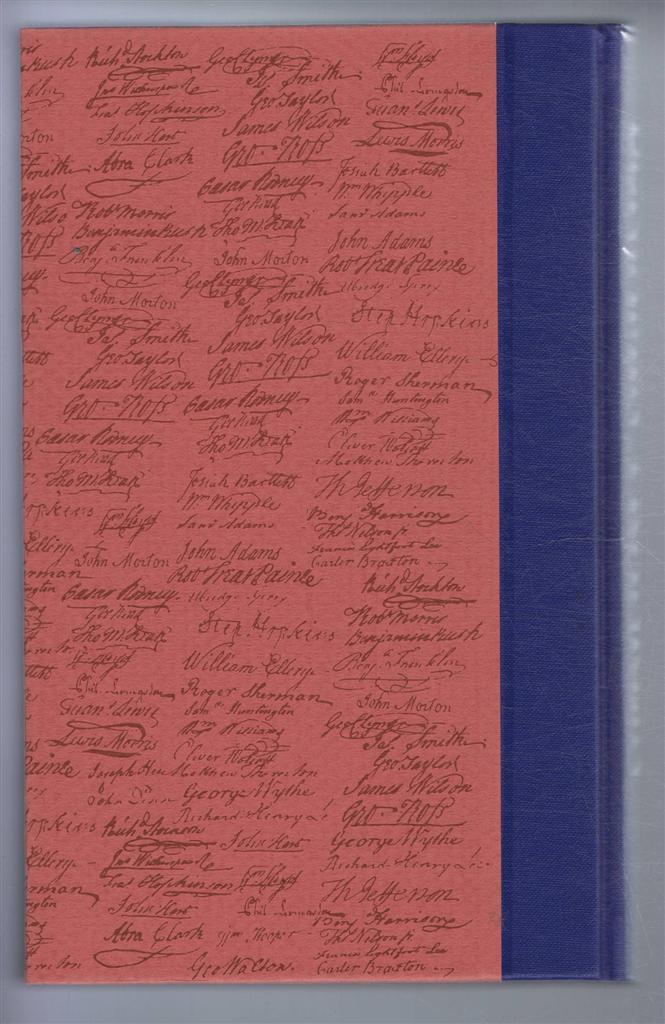 Rush
rton
Smith
aylor
Wilso
Rich^d Stockton
Jn^o Witherspoon
Fra^s Hopkinson
John Hart
Abra Clark
Rob^t Morris
Benjamin Rush
Benj^a Franklin
John Morton
Geo Clymer
Ja^s Smith
Geo Taylor
James Wilson
Geo. Ross
Caesar Rodney
Geo Read
Tho M:Kean
pkins
Ellery
W^m Floyd
rman
ngton
John Morton
Caesar Rodney
Geo Read
Tho M:Kean
W^m Floyd
Phil. Livingston
Fran^s Lewis
Lewis Morris
Joseph Hewes
Paine
John Penn
pkins
Rich^d Stockton
Ellery
Jn^o Witherspoon
rman
Fra^s Hopkinson
ngton
John Hart
Abra Clark
Geo Clymer
Ja^s Smith
Geo Taylor
James Wilson
Geo. Ross
Caesar Rodney
Geo Read
Tho M:Kean
John Morton
Geo Clymer
Ja^s Smith
Geo Taylor
James Wilson
Geo. Ross
Caesar Rodney
Geo Read
Tho M:Kean
Josiah Bartlett
W^m Whipple
Sam^l Adams
John Adams
Rob^t Treat Paine
Elbridge Gerry
Step. Hopkins
William Ellery
Roger Sherman
Sam^el Huntington
W^m Williams
Oliver Wolcott
Matthew Thornton
George Wythe
Richard Henry Lee
John Hart
W^m Floyd
Phil. Livingston
W^m Hooper
Geo Walton.
W^m Floyd
Phil. Livingston
Fran^s Lewis
Lewis Morris
Josiah Bartlett
W^m Whipple
Sam^l Adams
John Adams
Rob^t Treat Paine
Elbridge Gerry
Step. Hopkins
William Ellery
Roger Sherman
Sam^el Huntington
W^m Williams
Oliver Wolcott
Matthew Thornton
Th Jefferson
Benj Harrison
Tho^s Nelson jr.
Francis Lightfoot Lee
Carter Braxton
Rich^d Stockton
Rob^t Morris
Benjamin Rush
Benj^a Franklin
John Morton
Geo Clymer
Ja^s Smith
Geo Taylor
James Wilson
Geo. Ross
George Wythe
Richard Henry Lee
Th Jefferson
Benj Harrison
Tho^s Nelson jr.
Francis Lightfoot Lee
Carter Braxton